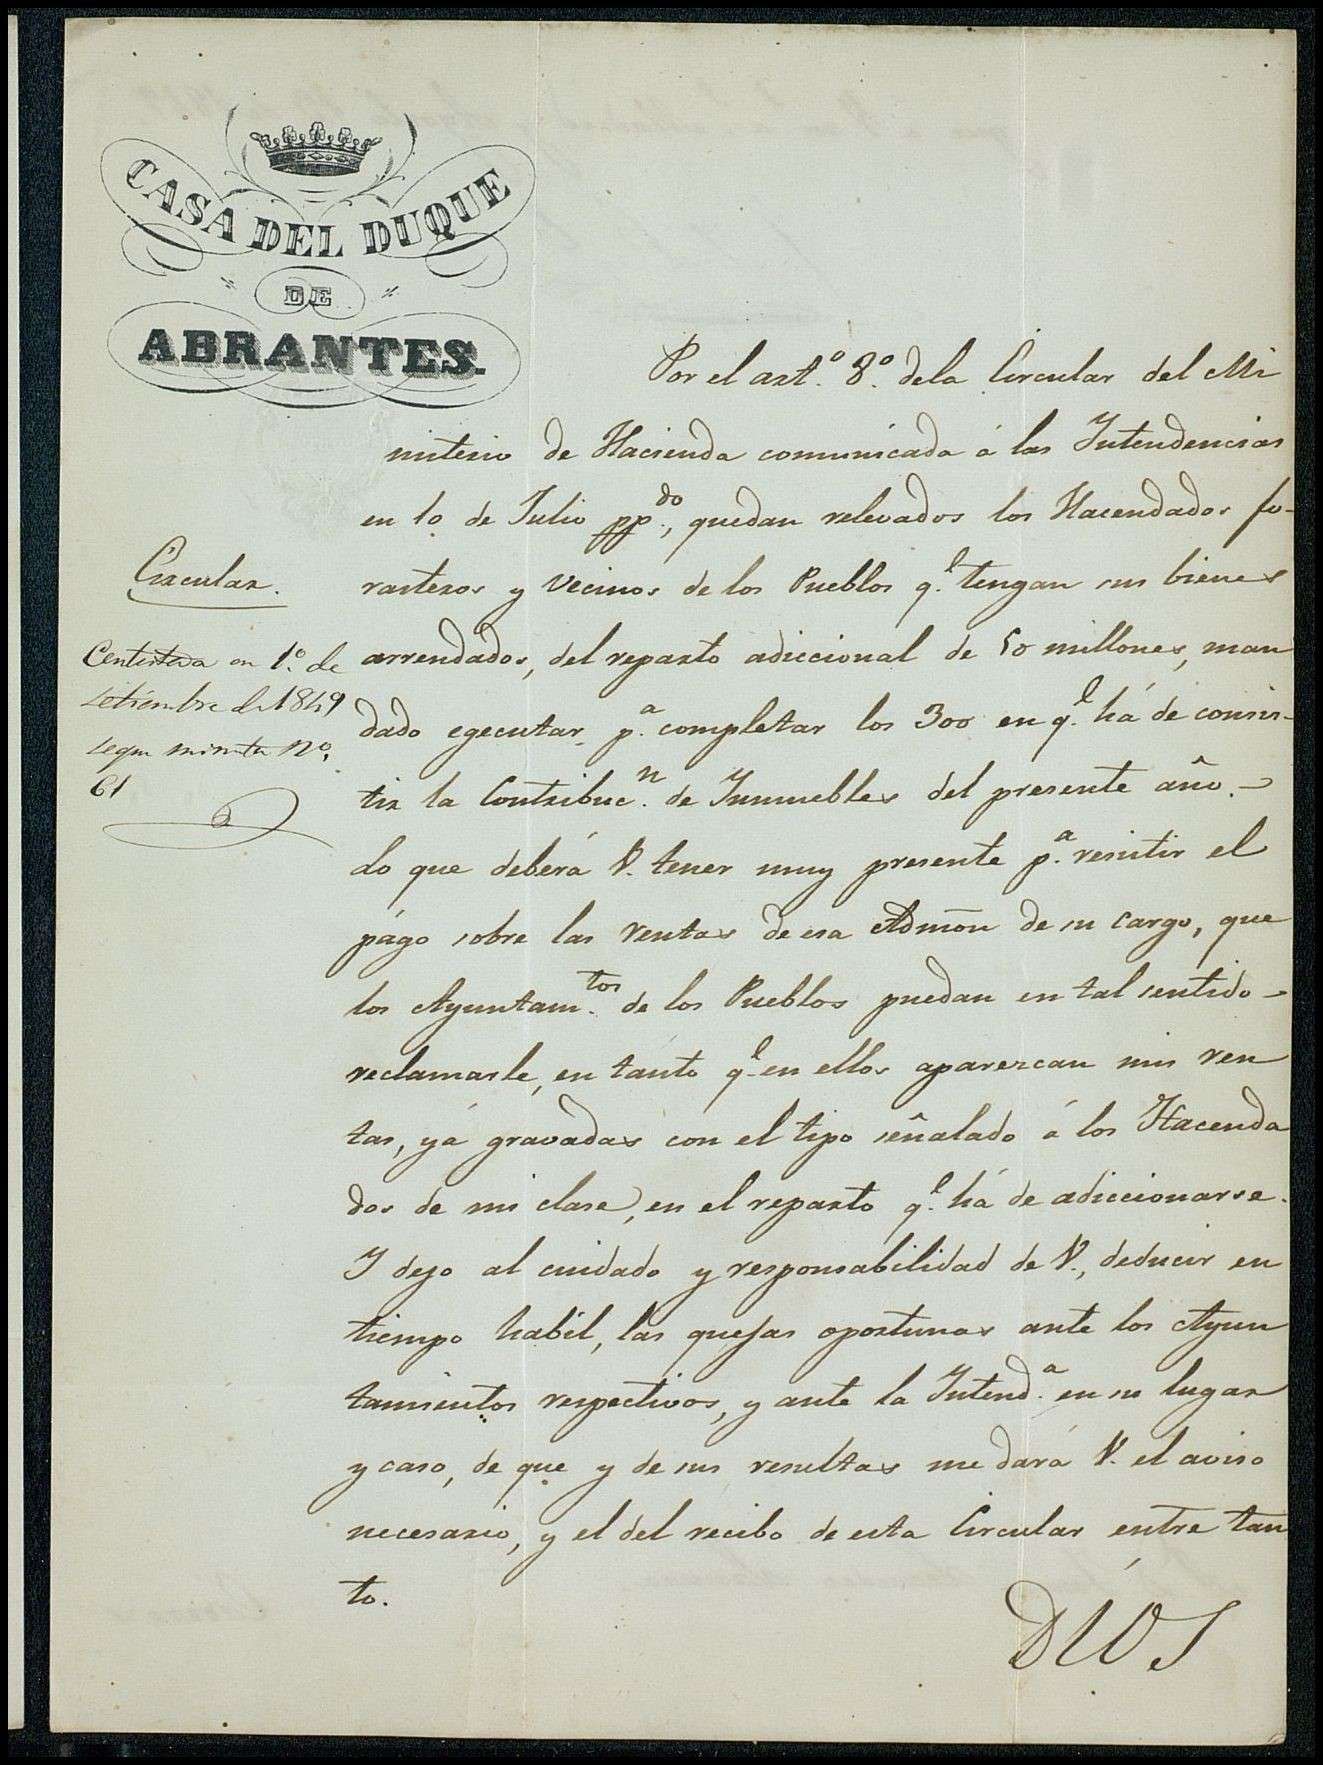 CASA DEL DUQUE
DE
ABRANTES.
Por el art.º 8.º dela Circular del Mi
nisterio de Hacienda comunicada á las Intendencias
en 10 de Julio pp.do, quedan relevados los Hacendados fo-
rasteros y vecinos de los Pueblos q.e tengan sus bienes
arrendados, del reparto adiccional de 50 millones, man
dado egecutar p.a completar los 300 en q.e há de consis-
tir la Contribuc.n de Inmuebles del presente año.-
Lo que deberá V. tener muy presente p.a resistir el
págo sobre las rentas de esa Admōn de su cargo, que
los Ayuntam.tos de los Pueblos puedan en tal sentido-
reclamarle, en tánto q.e en ellos aparezcan mis ren
tas, yá gravadas con el tipo señalado á los Hacenda
dos de mi clase, en el reparto q.e há de adiccionarse.
Y dejo al cuidado y responsabilidad de V., deducir en
tiempo habil, las quejas oportunas ante los Ayun
tamientos respectivos, y ante la Intend.a en su lugar
y caso, de que y de sus resultas me dará V. el aviso
necesario, y el del recibo de esta Circular entre tan
to.
DIOS
Circular.
Contestada en 1.º de
setiembre de 1849
segun minuta nº.
61